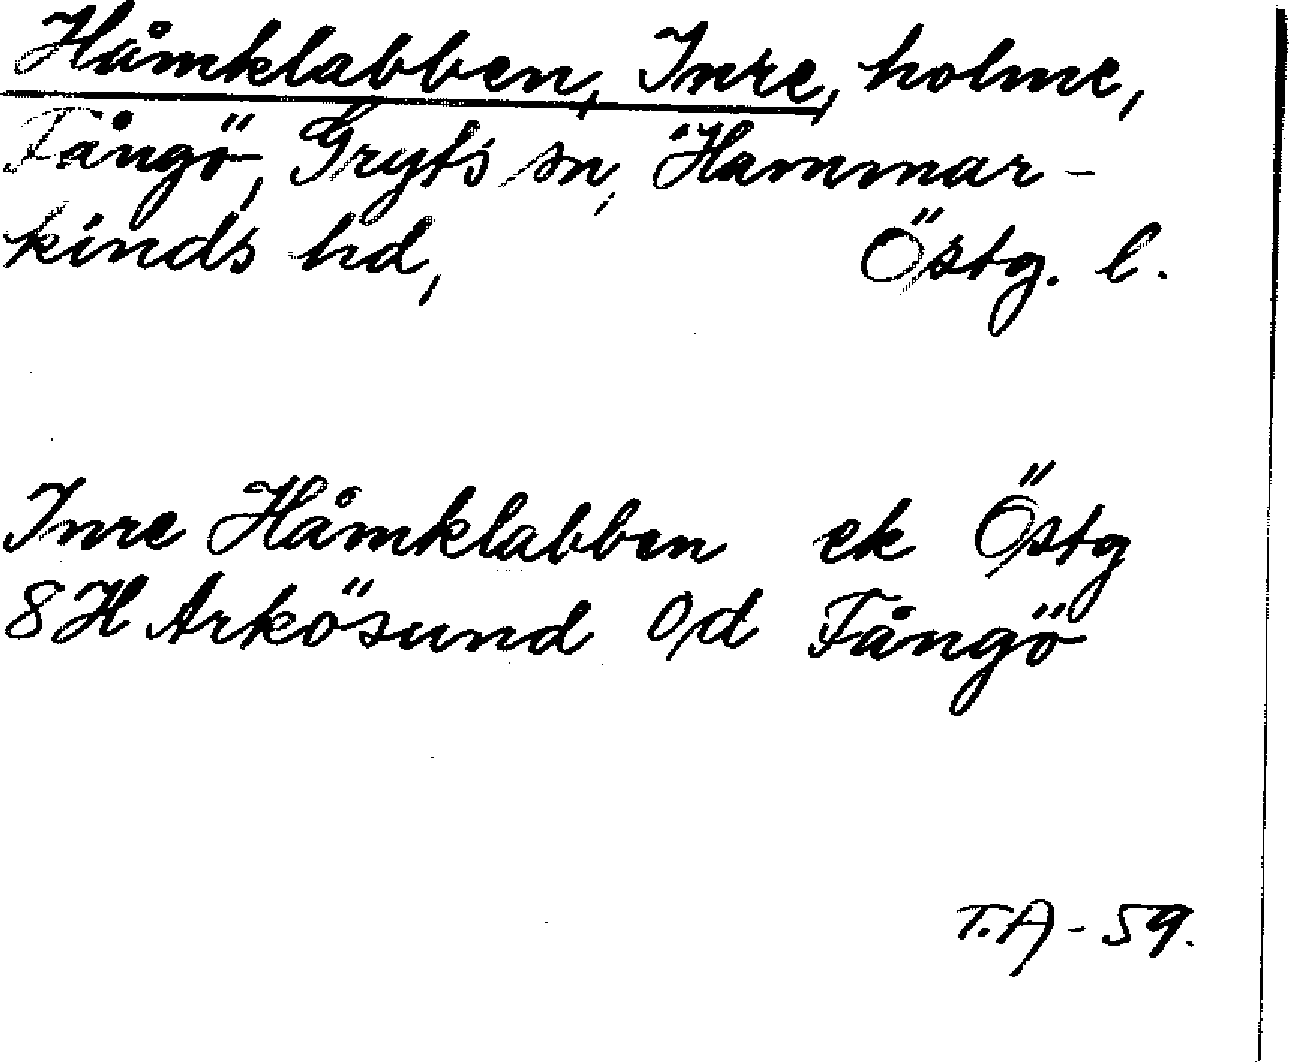 Håmklabben, Inre, holme,
Fångö, Gryts sn, Hammar-
kinds hd, Östg. l.
Inre Håmklabben ek Östg
8H Arkösund o/d Fångö
T.A - 59.